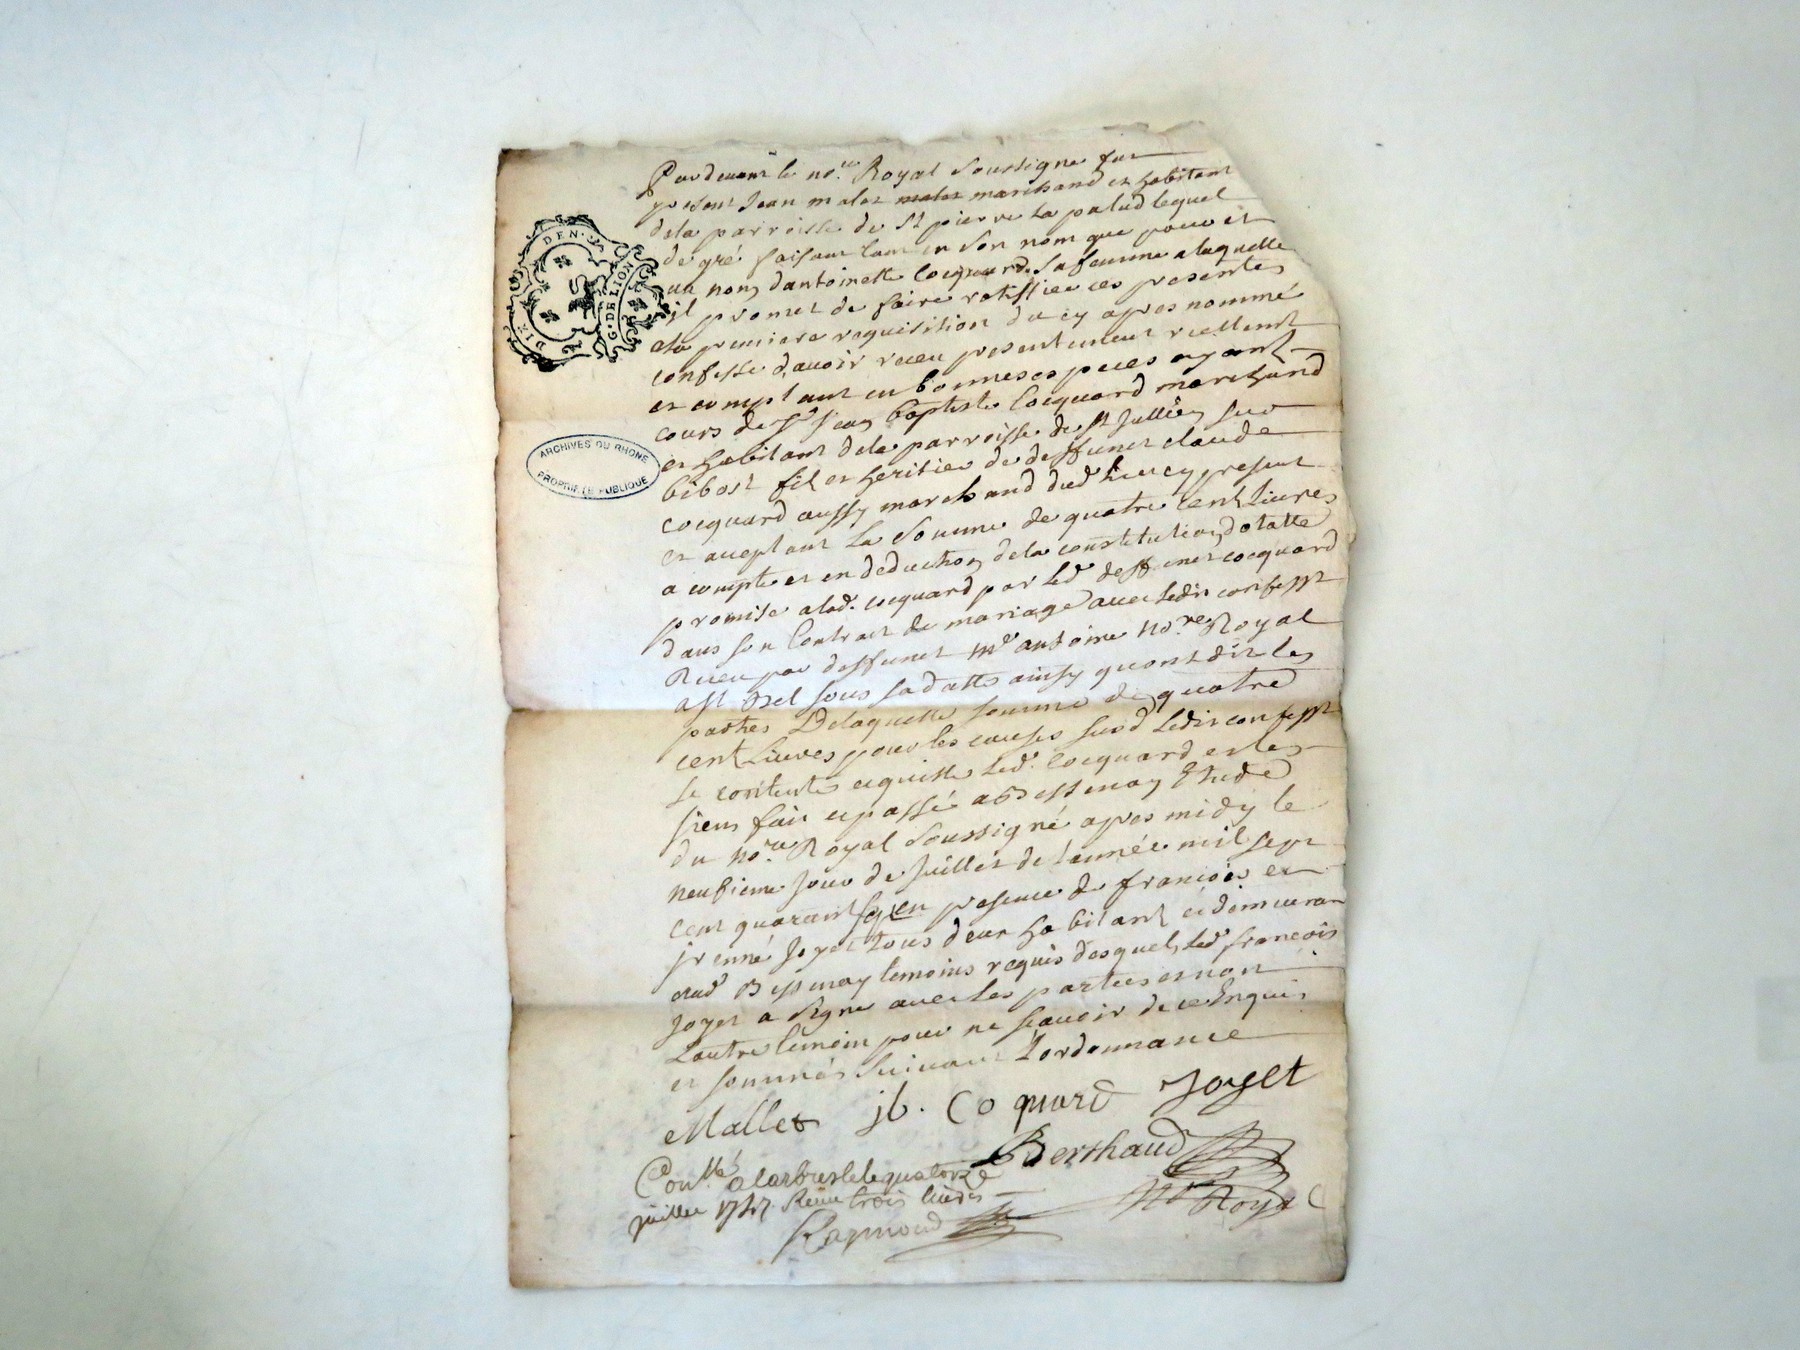 DEN.
G. DE LION
ARCHIVES DU RHONE
PROPRIETE PUBLIQUE
Pardevant le no.re Royal Soussigné fut
present Jean malet marchand et habitant
dela parroisse de St pierre La palud lequel
de gré faisant tant en son nom que pour et
au nom dantoinette Cocquard sa femme a laquelle
jl promet de faire ratiffier ces presentes
ala premiere requisition du cy apres nommé
confesse d'avoir receu presentement reellement
et comptant en bonnes especes ayant
cours de Sr Jean baptiste Cocquard marchand
et habitant dela parroisse de St Jullien sur
bibost fils et heritier de deffunct claude
cocquard aussy marchand dud. lieu cy present
et aceptant La Somme de quatre cent Livres
a compte et en deduction dela constitution dotalle
promise a lad. cocquard par led. deffunct cocquard
dans son Contract de mariage avec ledit confesst
Receu par deffunct me antoine no.re Royal
sous sa datte ainsy quont dit les
parties Delaquelle somme de quatre
cent Livres pour les causes susd. ledit confesst
se contente et quitte led. Cocquard et les
siens fait et passé a Bessenay Etude
du no.re Royal Soussigné apres midy le
neufieme jour de Juillet de l'année mil sept
cent quarant sept en presence de francois et
Joyet tous deux habitants et demeurant
aud. Bessenay temoins requis desquels led. francois
Joyet a signé avec les parties et non
Lautre temoin pour ne scavoir de ce Enquis
et sommés suivant L'ordonnance
Mallet jb. Coquard Joyet
Berthaud
no.re Royal
Con.llé a larbresle le quatorze
juillet 1747 Receu trois livres
Raymond